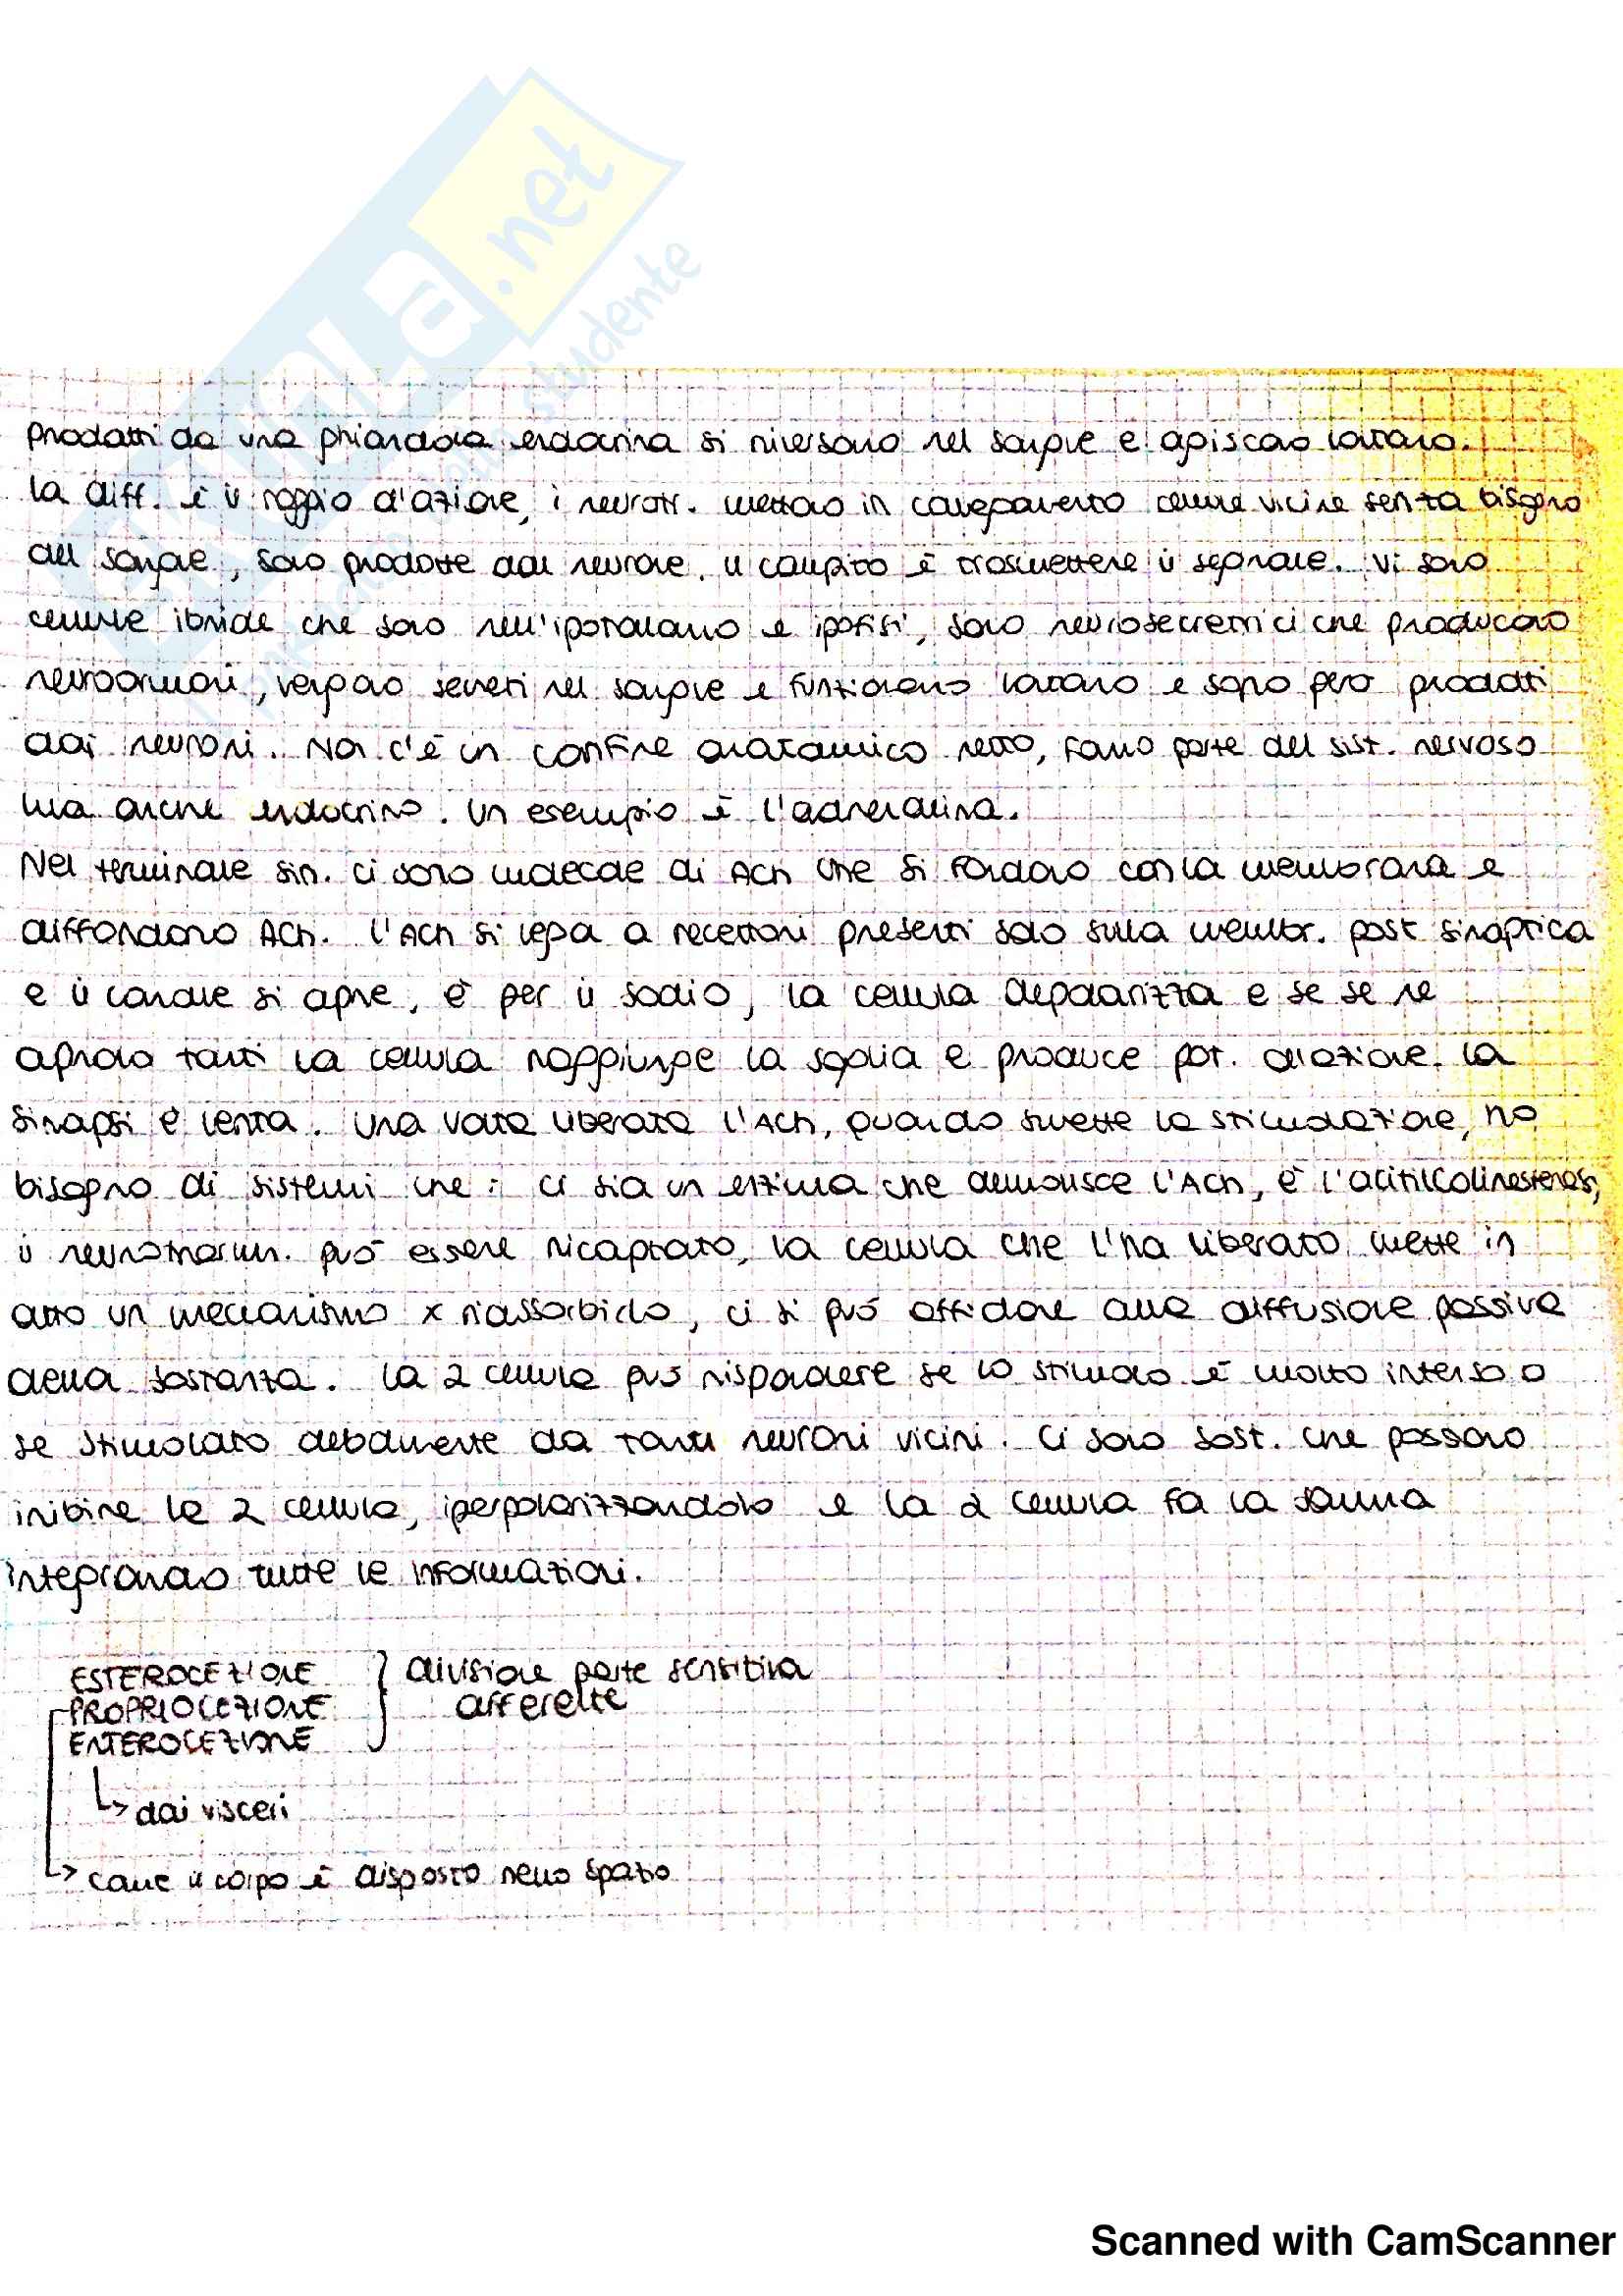 .net
studente
prodotti da una ghiandola endocrina si riversano nel sangue e agiscono lontano.
la diff. è il raggio d'azione, i neurotr. mettono in collegamento cellule vicine senza bisogno
del sangue, sono prodotte dal neurone. il compito è trasmettere il segnale. Vi sono
cellule ibride che sono nell'ipotalamo e ipofisi, sono neurosecretrici che producono
neurormoni, vengono secreti nel sangue e funzionano lontano e sono però prodotti
dai neuroni. Non c'è un confine anatomico netto, fanno parte del sist. nervoso
ma anche endocrino. Un esempio è l'adrenalina.
Nel terminale sin. ci sono molecole di ACh che si fondono con la membrana e
diffondono ACh. l'ACh si lega a recettori presenti solo sulla membr. post sinaptica
e il canale si apre, è per il sodio, la cellula depolarizza e se se ne
aprono tanti la cellula raggiunge la soglia e produce pot. d'azione. la
sinapsi è lenta. Una volta liberata l'ACh, quando smette la stimolazione, ho
bisogno di sistemi che: ci sia un enzima che demolisce l'ACh, è l'acitilcolinesterasi,
il può essere ricaptato, la cellula che l'ha liberato mette in
atto un meccanismo x riassorbirlo, ci si può affidare alla diffusione passiva
della sostanza. la 2 cellula può rispondere se lo stimolo è molto intenso o
se stimolato debolmente da tanti neuroni vicini. Ci sono sost. che possono
inibire la 2 cellula, iperpolarizzandola e la 2 cellula fa la somma
integrando tutte le informazioni.
ESTEROCEZIONE } divisione parte sensitiva
PROPRIOCEZIONE afferente
ENTEROCEZIONE
↳ dai visceri
↳ come il corpo è disposto nello spazio
Scanned with CamScanner